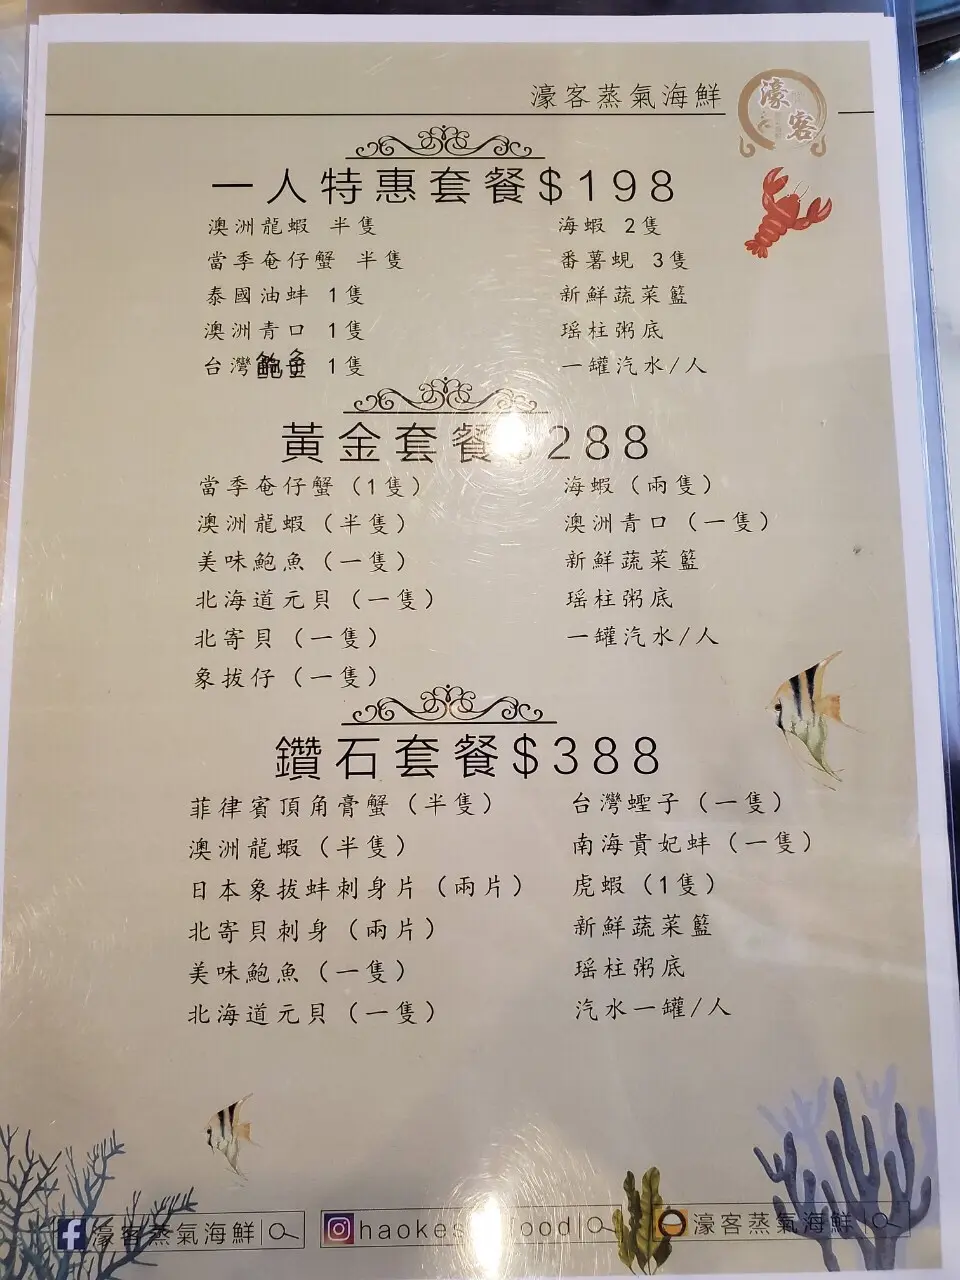 濠客蒸氣海鮮
濠客
一人特惠套餐$198
澳洲龍蝦 半隻
當季奄仔蟹 半隻
泰國油蚌 1隻
澳洲青口 1隻
台灣鮑魚 1隻
海蝦 2隻
番薯蜆 3隻
新鮮蔬菜籃
瑶柱粥底
一罐汽水/人
黃金套餐$288
當季奄仔蟹（1隻）
澳洲龍蝦（半隻）
美味鮑魚（一隻）
北海道元貝（一隻）
北寄貝（一隻）
象拔仔（一隻）
海蝦（兩隻）
澳洲青口（一隻）
新鮮蔬菜籃
瑶柱粥底
一罐汽水/人
鑽石套餐$388
菲律賓頂角膏蟹（半隻）
澳洲龍蝦（半隻）
日本象拔蚌刺身片（兩片）
北寄貝刺身（兩片）
美味鮑魚（一隻）
北海道元貝（一隻）
台灣蟶子（一隻）
南海貴妃蚌（一隻）
虎蝦（1隻）
新鮮蔬菜籃
瑶柱粥底
汽水一罐/人
濠客蒸氣海鮮
濠客蒸氣海鮮